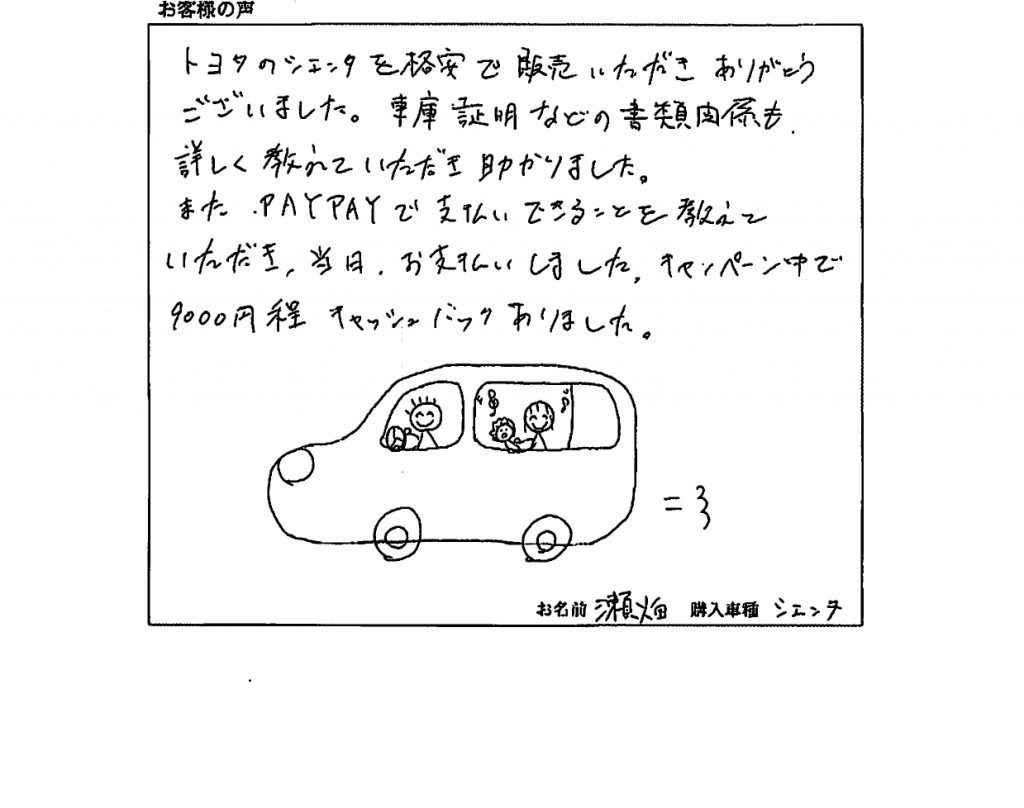 お客様の声
トヨタのシエンタを格安で販売いただきありがとう
ございました。車庫証明などの書類関係も
詳しく教えていただき助かりました。
また.PAYPAYで支払いできることを教えて
いただき、当日、お支払いしました。キャンペーン中で
9000円程キャッシュバックありました。
お名前 瀬畑 購入車種 シエンタ